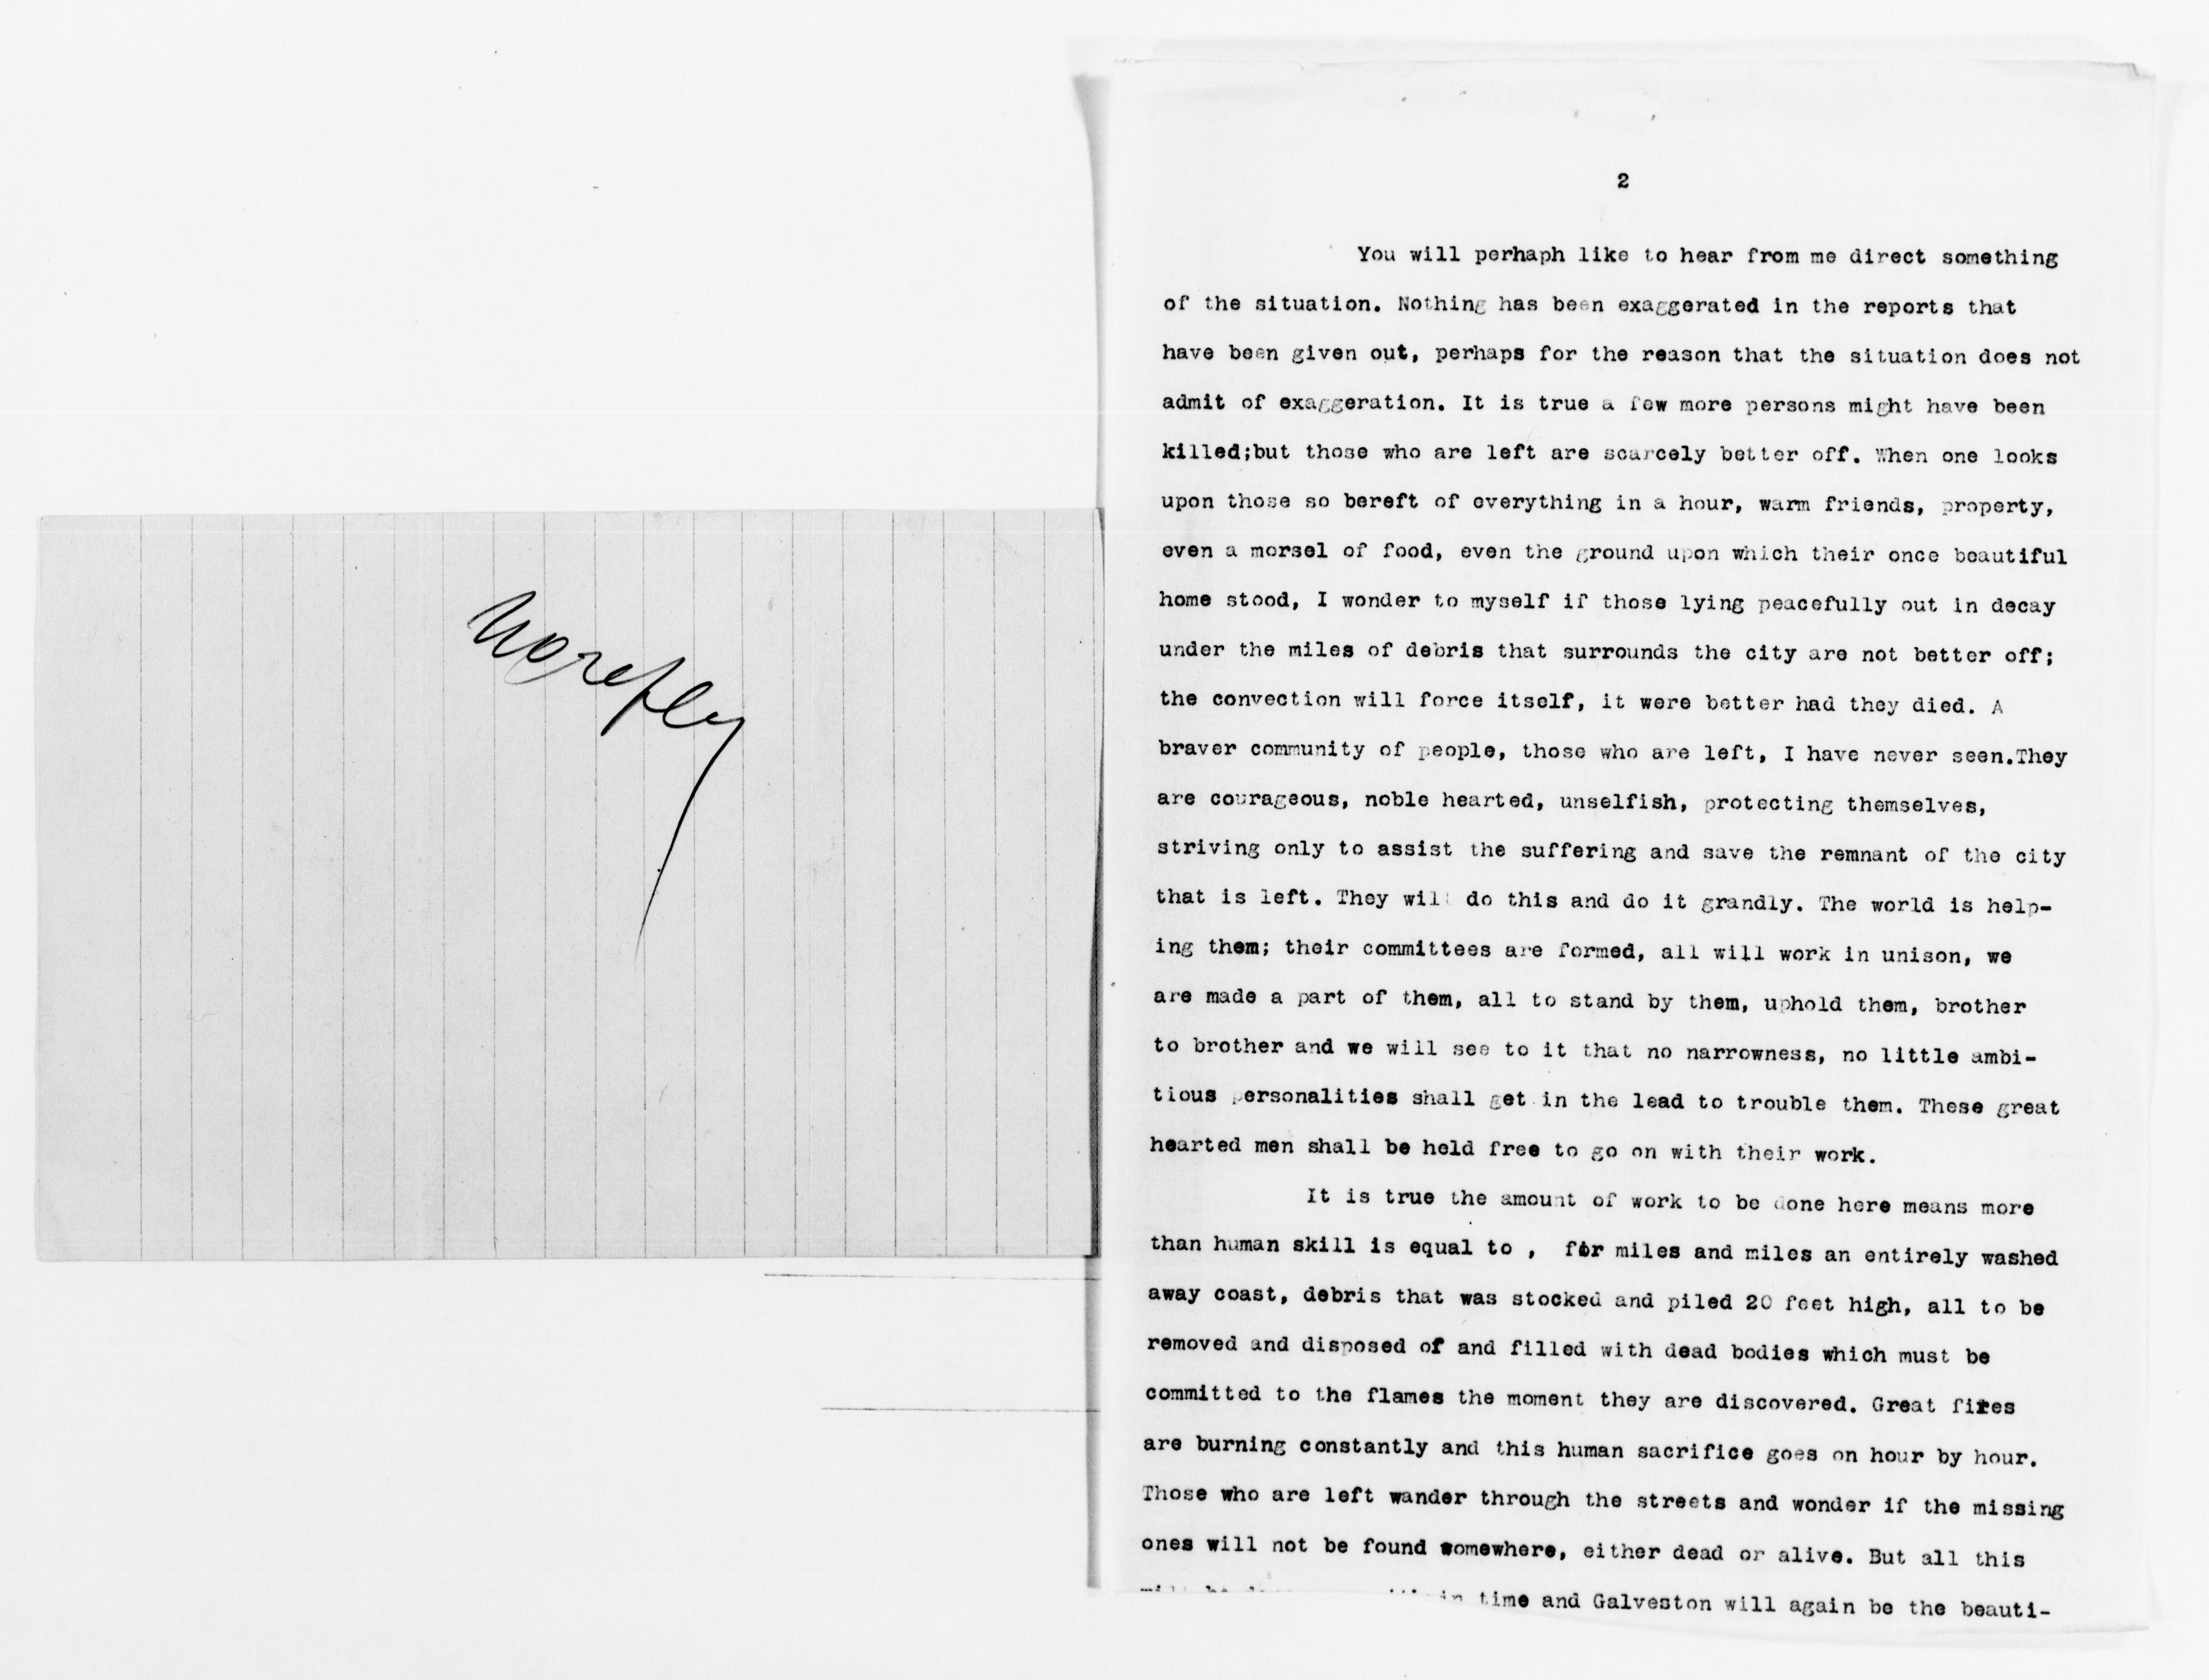 No reply
2
You will perhaph like to hear from me direct something
of the situation. Nothing has been exaggerated in the reports that
have been given out, perhaps for the reason that the situation does not
admit of exaggeration. It is true a few more persons might have been
killed;but those who are left are scarcely better off. When one looks
upon those so bereft of everything in a hour, warm friends, property,
even a morsel of food, even the ground upon which their once beautiful
home stood, I wonder to myself if those lying peacefully out in decay
under the miles of debris that surrounds the city are not better off;
the convection will force itself, it were better had they died. A
braver community of people, those who are left, I have never seen.They
are courageous, noble hearted, unselfish, protecting themselves,
striving only to assist the suffering and save the remnant of the city
that is left. They will do this and do it grandly. The world is help-
ing them; their committees are formed, all will work in unison, we
are made a part of them, all to stand by them, uphold them, brother
to brother and we will see to it that no narrowness, no little ambi-
tious personalities shall get in the lead to trouble them. These great
hearted men shall be held free to go on with their work.
It is true the amount of work to be done here means more
than human skill is equal to , for miles and miles an entirely washed
away coast, debris that was stocked and piled 20 feet high, all to be
removed and disposed of and filled with dead bodies which must be
committed to the flames the moment they are discovered. Great fires
are burning constantly and this human sacrifice goes on hour by hour.
Those who are left wander through the streets and wonder if the missing
ones will not be found somewhere, either dead or alive. But all this
in time and Galveston will again be the beauti-